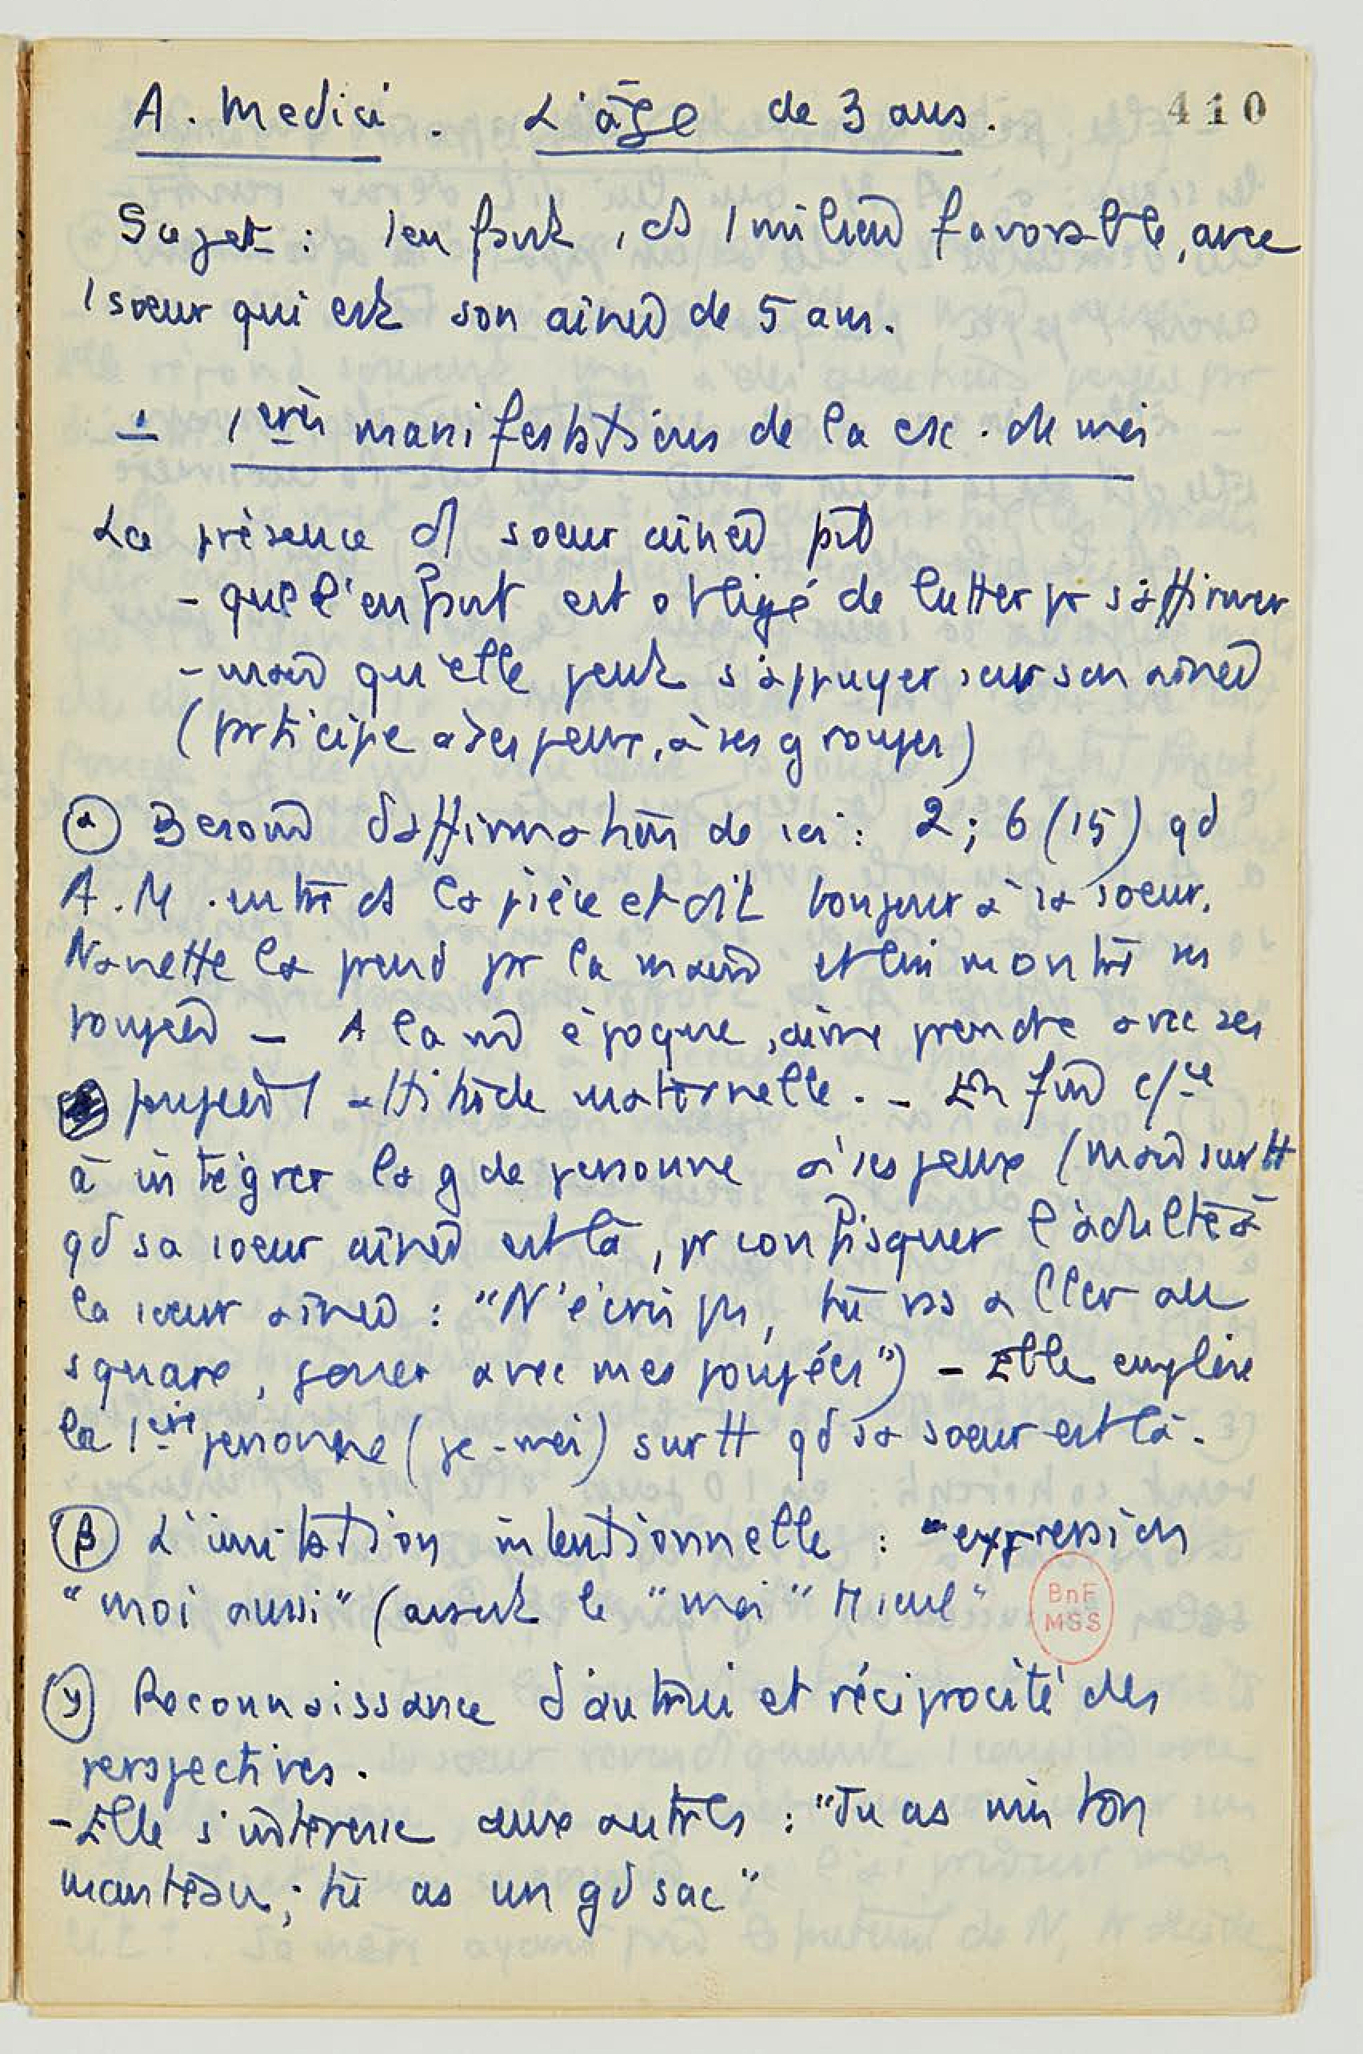 A. Medici. L'âge de 3 ans. 410
Sujet : 1 enfant, ds 1 milieu favorable, avec
1 soeur qui est son ainée de 5 ans.
I 1ères manifestations de la csc. de moi
La présence d'1 soeur ainée fait
- que l'enfant est obligé de lutter pr s'affirmer
- mais qu'elle peut s'appuyer sur son ainée
(participe à ses jeux, à ses groupes)
α Besoin d'affirmation de soi : 2 ; 6 (15) qd
A.M. entre ds la pièce et dit bonjour à sa soeur,
Nanette la prend pr la main et lui montre ses
poupées - A la m̂ époque, aime prendre avec ses
poupées 1 attitude maternelle. - En fin c/ce
à intégrer la gde personne à ses jeux (mais surtt
qd sa soeur ainée est là, pr confisquer l'adulte à
la soeur ainée : "N'écris pas, tu vas aller au
square, jouer avec mes poupées") - Elle emploie
la 1ère personne (je-moi) surtt qd sa soeur est là.
β L'imitation intentionnelle : expression
"moi aussi" (avant le "moi tt seul"
BnF
MSS
γ Reconnaissance d'autrui et réciprocité des
perspectives.
- Elle s'intéresse aux autres : "Tu as mis ton
manteau ; tu as un gd sac"